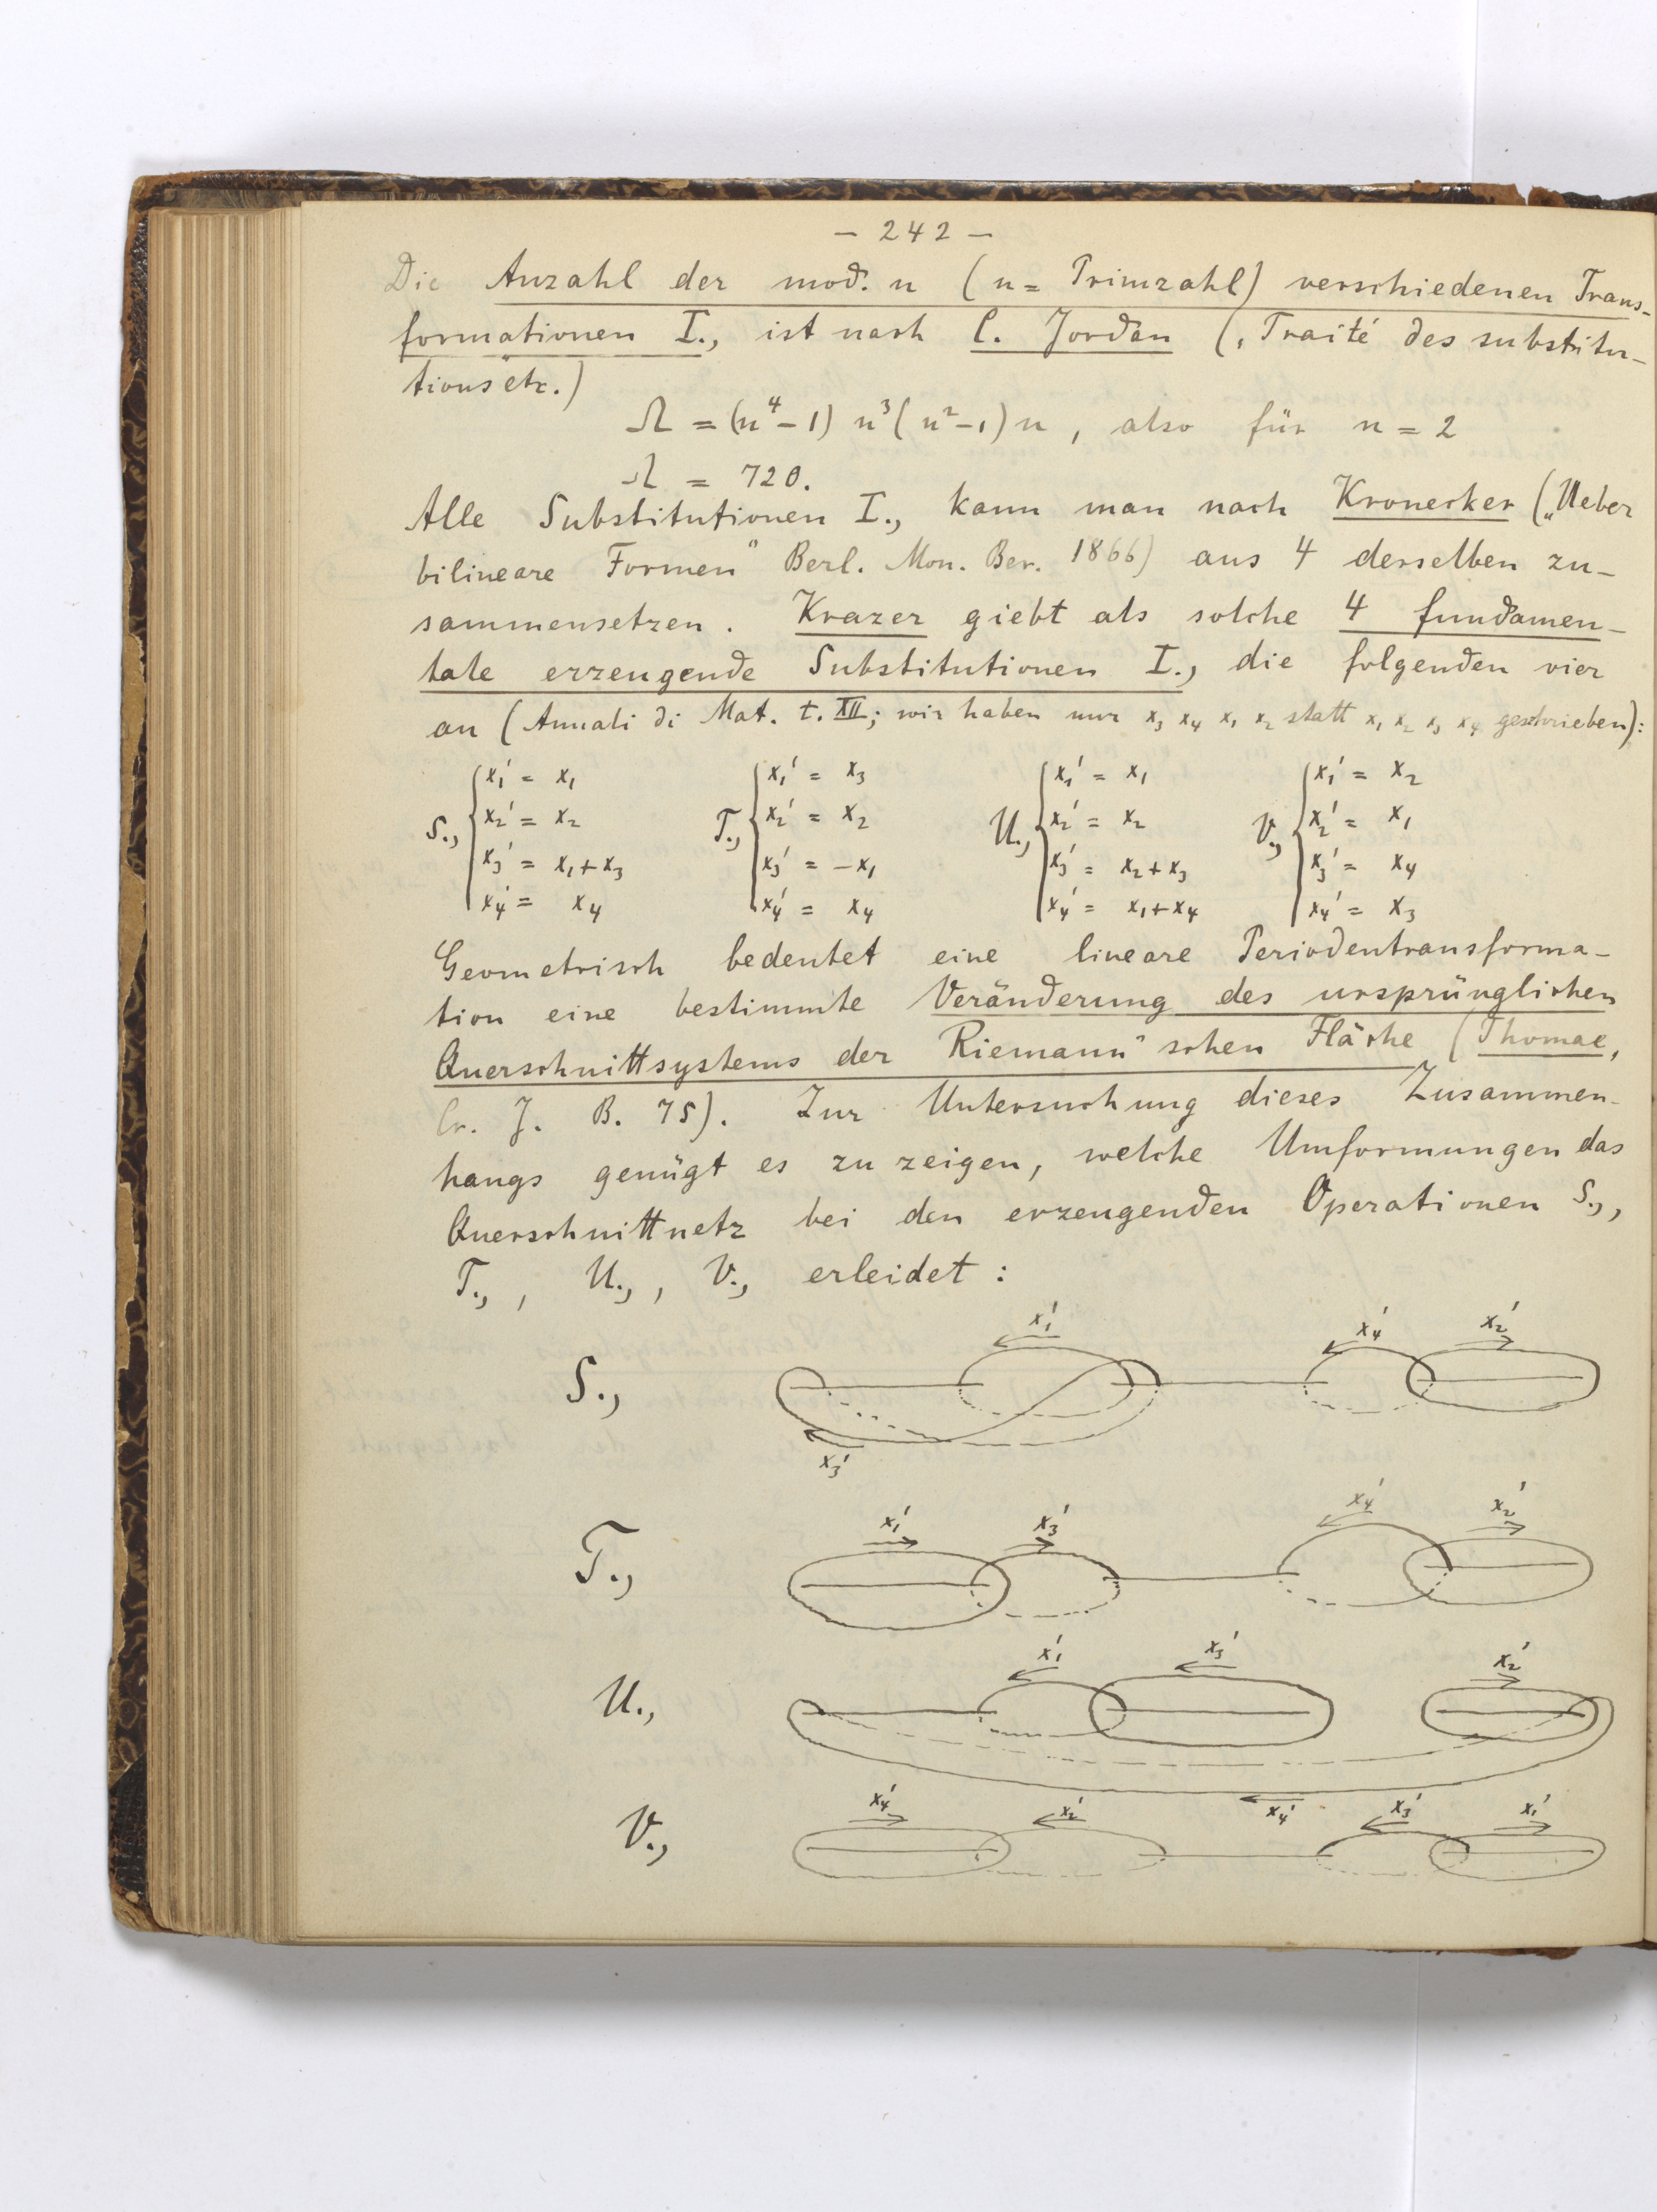 — 242 —
Die Anzahl der mod. n (n = Primzahl) verschiedenen Trans-
formationen I., ist nach C. Jordan („Traité des substitu-
tions etc.)
Ω = (n⁴ – 1) n³ (n² – 1) n , also für n = 2
Ω = 720.
Alle Substitutionen I., kann man nach Kronecker („Ueber
bilineare Formen" Berl. Mon. Ber. 1866) aus 4 derselben zu-
sammensetzen. Krazer giebt als solche 4 fundamen-
tale erzeugende Substitutionen I., die folgenden vier
an (Annali di Mat. t. XII; wir haben nur x₃ x₄ x₁ x₂ statt x₁ x₂ x₃ x₄ geschrieben):
x₁' = x₁ x₁' = x₃ x₁' = x₁ x₁' = x₂
S., x₂' = x₂ T., x₂' = x₂ U., x₂' = x₂ V., x₂' = x₁
x₃' = x₁ + x₃ x₃' = – x₁ x₃' = x₂ + x₃ x₃' = x₄
x₄' = x₄ x₄' = x₄ x₄' = x₁ + x₄ x₄' = x₃
Geometrisch bedeutet eine lineare Periodentransforma-
tion eine bestimmte Veränderung des ursprünglichen
Querschnittsystems der Riemann'schen Fläche (Thomae,
Cr. J. B. 75). Zur Untersuchung dieses Zusammen-
hangs genügt es zu zeigen, welche Umformungen das
Querschnittnetz bei den erzeugenden Operationen S.,,
T., , U., , V., erleidet :
x₁' x₄' x₂'
S.,
x₃'
x₁' x₃' x₄' x₂'
T.,
x₁' x₃' x₂'
U.,
x₄'
x₄' x₂' x₃' x₁'
V.,